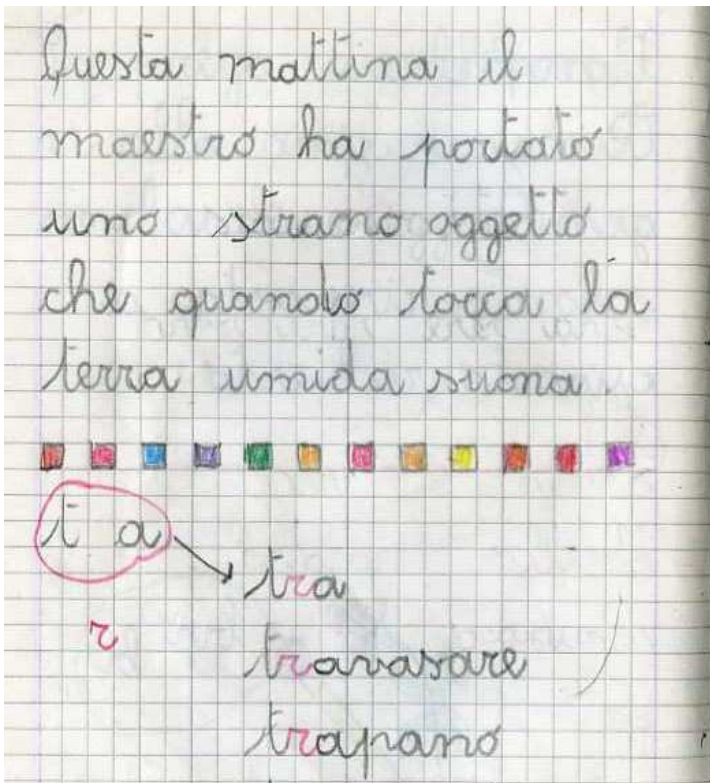 Questa mattina il
maestro ha portato
uno strano oggetto
che quando tocca la
terra umida suona.
t a
tra
r
travasare
trapano